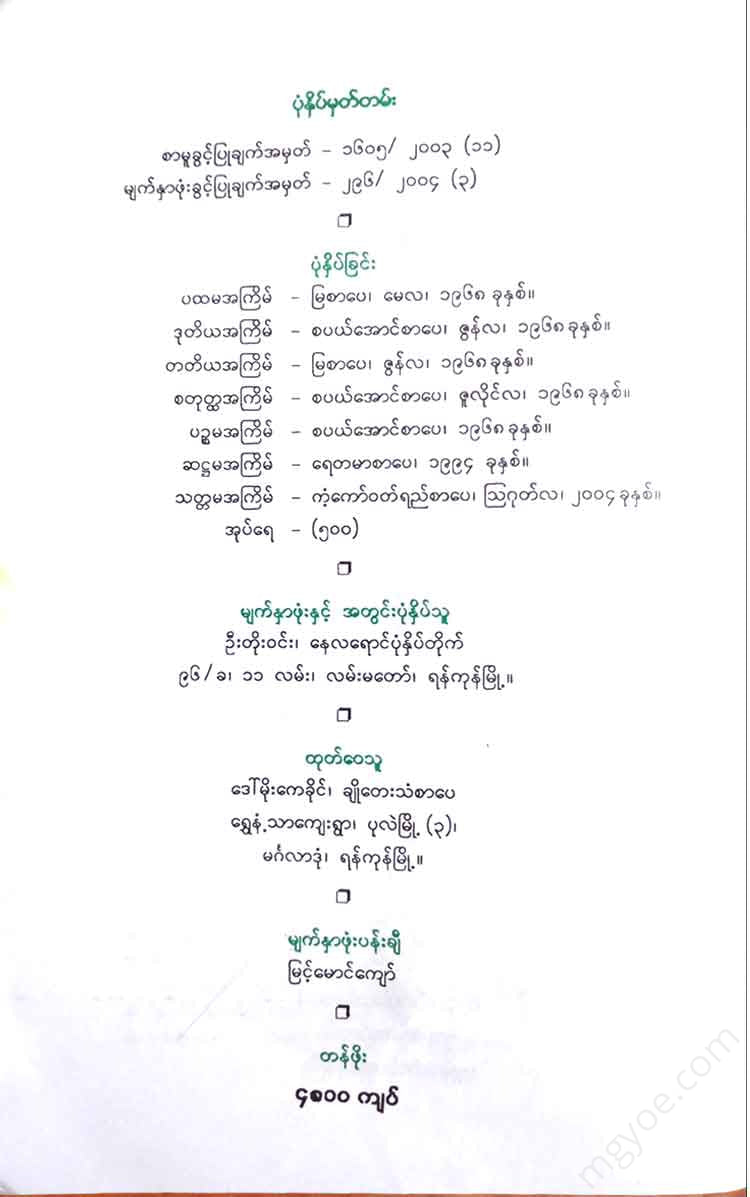 ပုံနှိပ်မှတ်တမ်း
စာမူခွင့်ပြုချက်အမှတ် – ၁၆၀၅/ ၂၀၀၃ (၁၁)
မျက်နှာဖုံးခွင့်ပြုချက်အမှတ် – ၂၉၆/ ၂၀၀၄ (၃)
ပုံနှိပ်ခြင်း
ပထမအကြိမ် – မြစာပေ၊ မေလ၊ ၁၉၆၈ ခုနှစ်။
ဒုတိယအကြိမ် – စပယ်အောင်စာပေ၊ ဇွန်လ၊ ၁၉၆၈ ခုနှစ်။
တတိယအကြိမ် – မြစာပေ၊ ဇွန်လ၊ ၁၉၆၈ ခုနှစ်။
စတုတ္ထအကြိမ် – စပယ်အောင်စာပေ၊ ဇူလိုင်လ၊ ၁၉၆၈ ခုနှစ်။
ပဉ္စမအကြိမ် – စပယ်အောင်စာပေ၊ ၁၉၆၈ ခုနှစ်။
ဆဋ္ဌမအကြိမ် – ရေတမာစာပေ၊ ၁၉၉၄ ခုနှစ်။
သတ္တမအကြိမ် – ကံ့ကော်ဝတ်ရည်စာပေ၊ ဩဂုတ်လ၊ ၂၀၀၄ ခုနှစ်။
အုပ်ရေ – (၅၀၀)
မျက်နှာဖုံးနှင့် အတွင်းပုံနှိပ်သူ
ဦးတိုးဝင်း၊ နေလရောင်ပုံနှိပ်တိုက်
၉၆/ခ၊ ၁၁ လမ်း၊ လမ်းမတော်၊ ရန်ကုန်မြို့။
ထုတ်ဝေသူ
ဒေါ်မိုးကေခိုင်၊ ချိုတေးသံစာပေ
ရွှေနံ့သာကျေးရွာ၊ ပုလဲမြို့ (၃)၊
မင်္ဂလာဒုံ၊ ရန်ကုန်မြို့။
မျက်နှာဖုံးပန်းချီ
မြင့်မောင်ကျော်
တန်ဖိုး
၄၈၀၀ ကျပ်
mgyoe.com